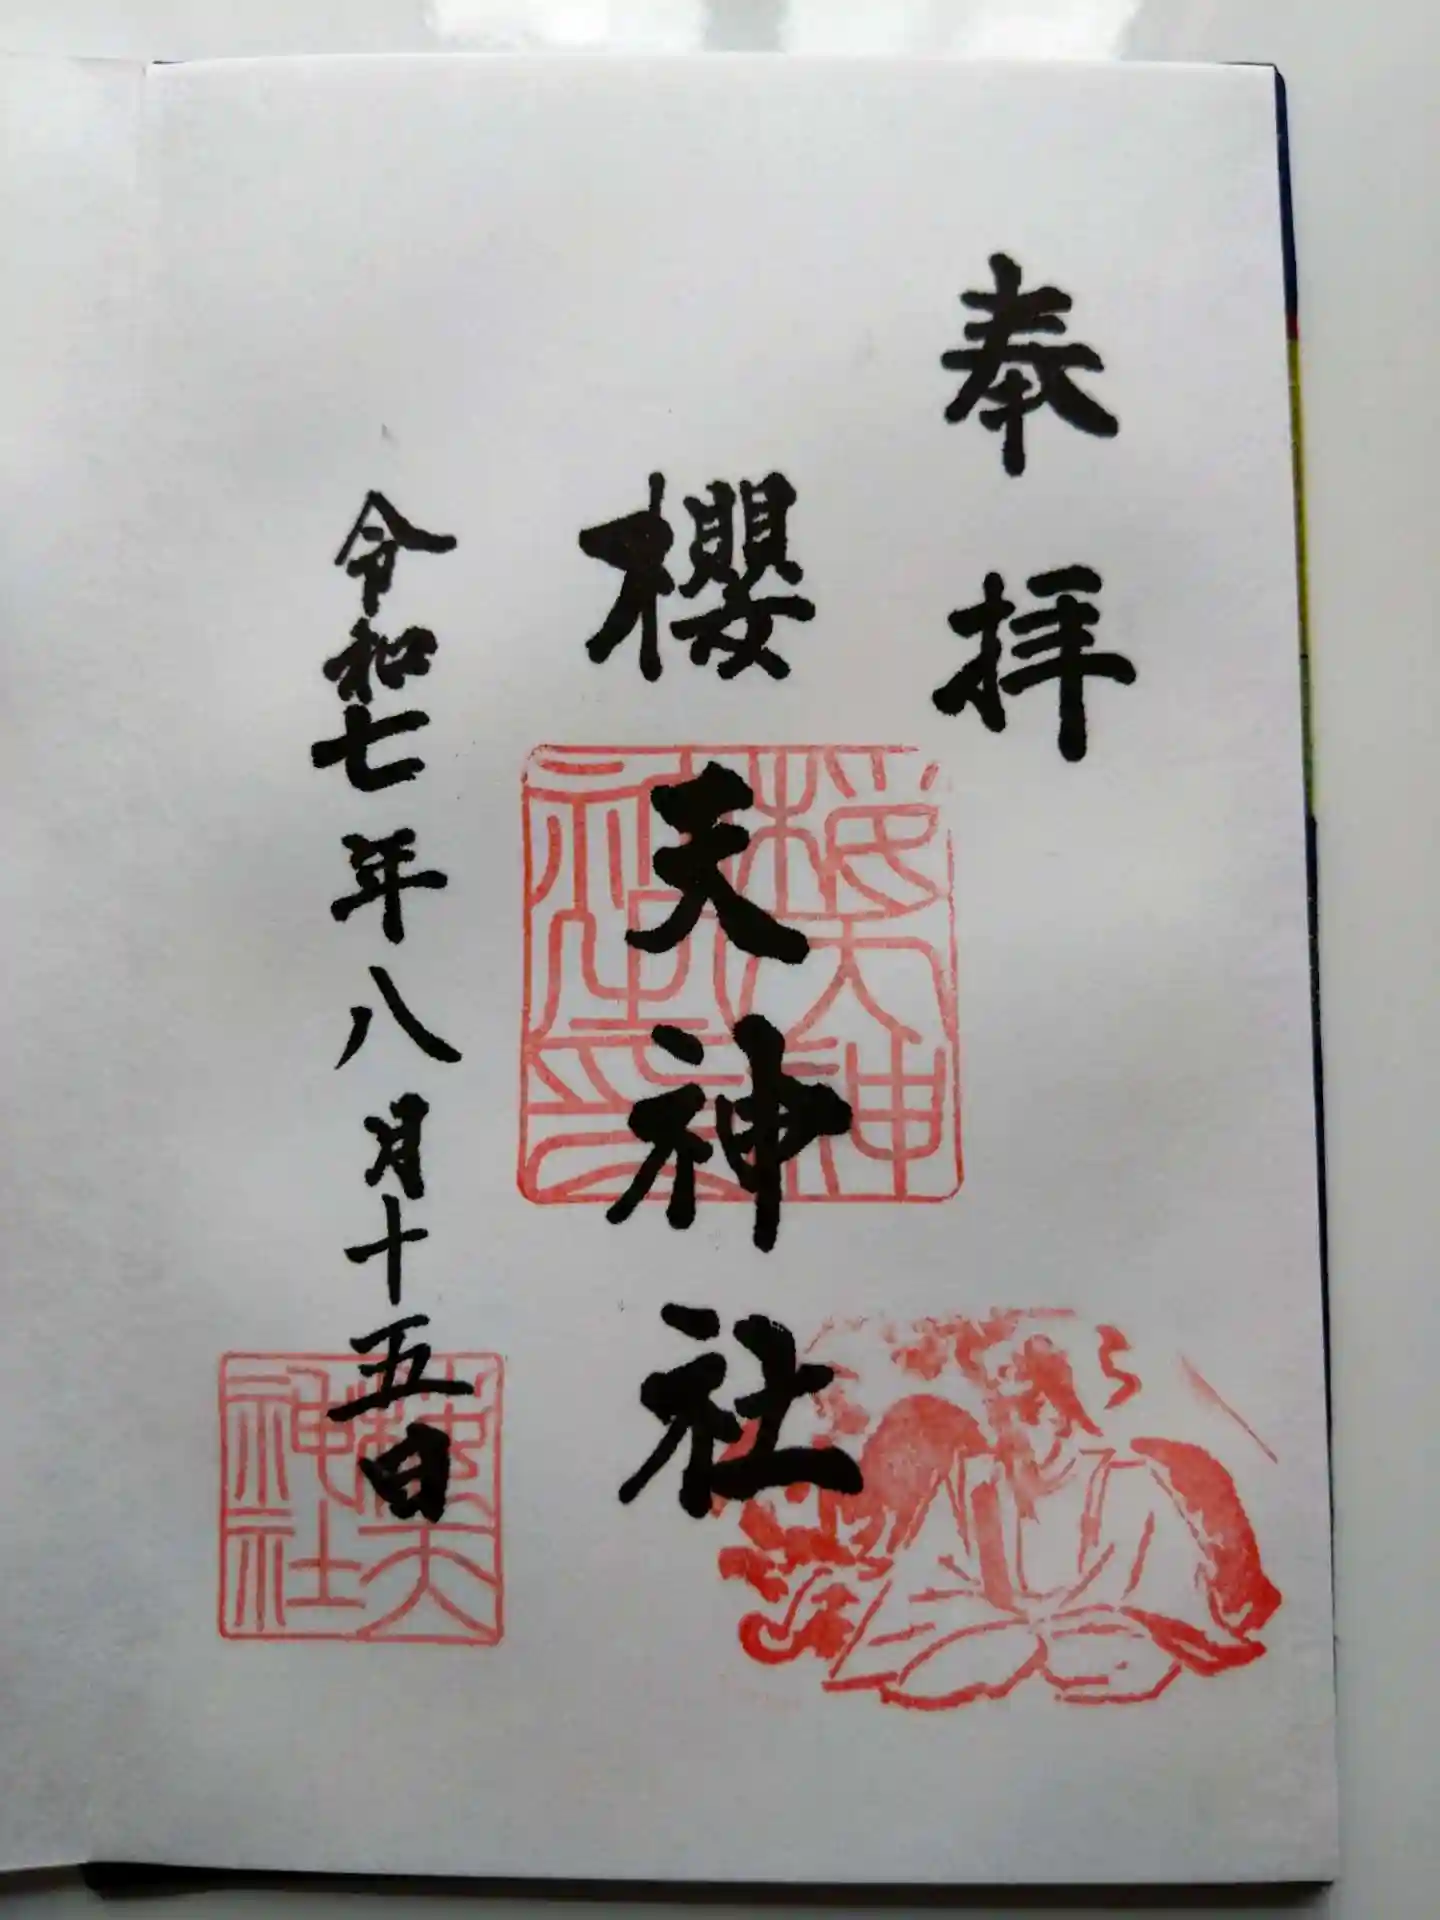 奉拝
櫻天神社
令和七年八月十五日
桜天神社印
桜天神社